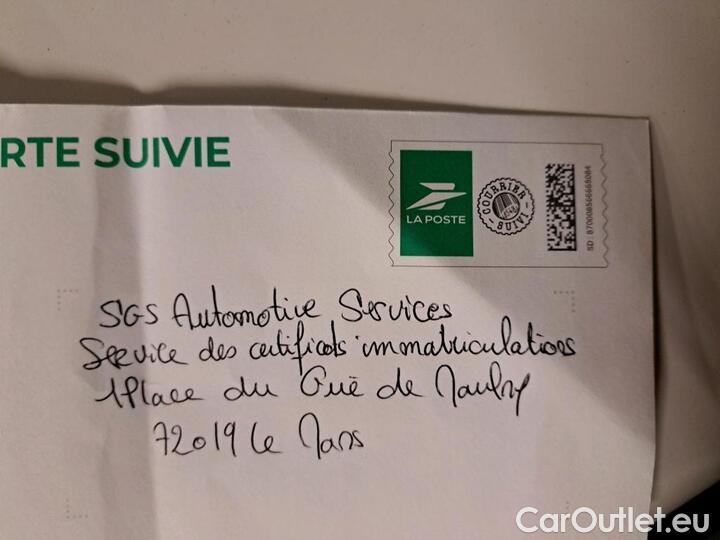 RTE SUIVIE
LA POSTE
COURRIER
SUIVI
SD : 87000856666S084
SGS Automotive Services
Service des certificats immatriculations
1 Place du Gué de Maulny
72019 Le Mans
CarOutlet.eu